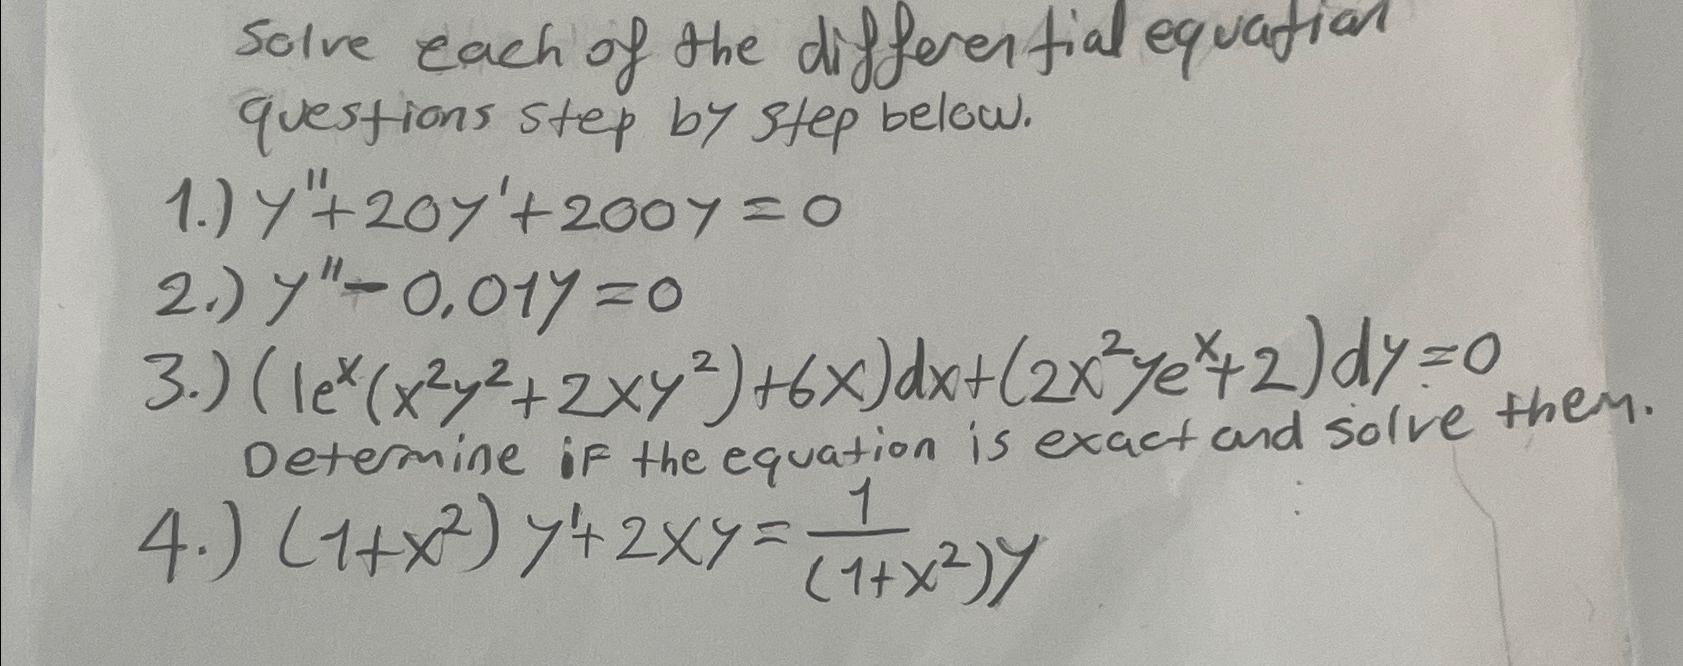 Solve each of the differential equation
questions step by step below.
1.) y''+20y'+200y=0
2.) y''-0.01y=0
3.) (1e^x(x²y²+2xy²)+6x)dx+(2x²ye^x+2)dy=0
Determine if the equation is exact and solve them.
4.) (1+x²)y'+2xy=1/(1+x²)y